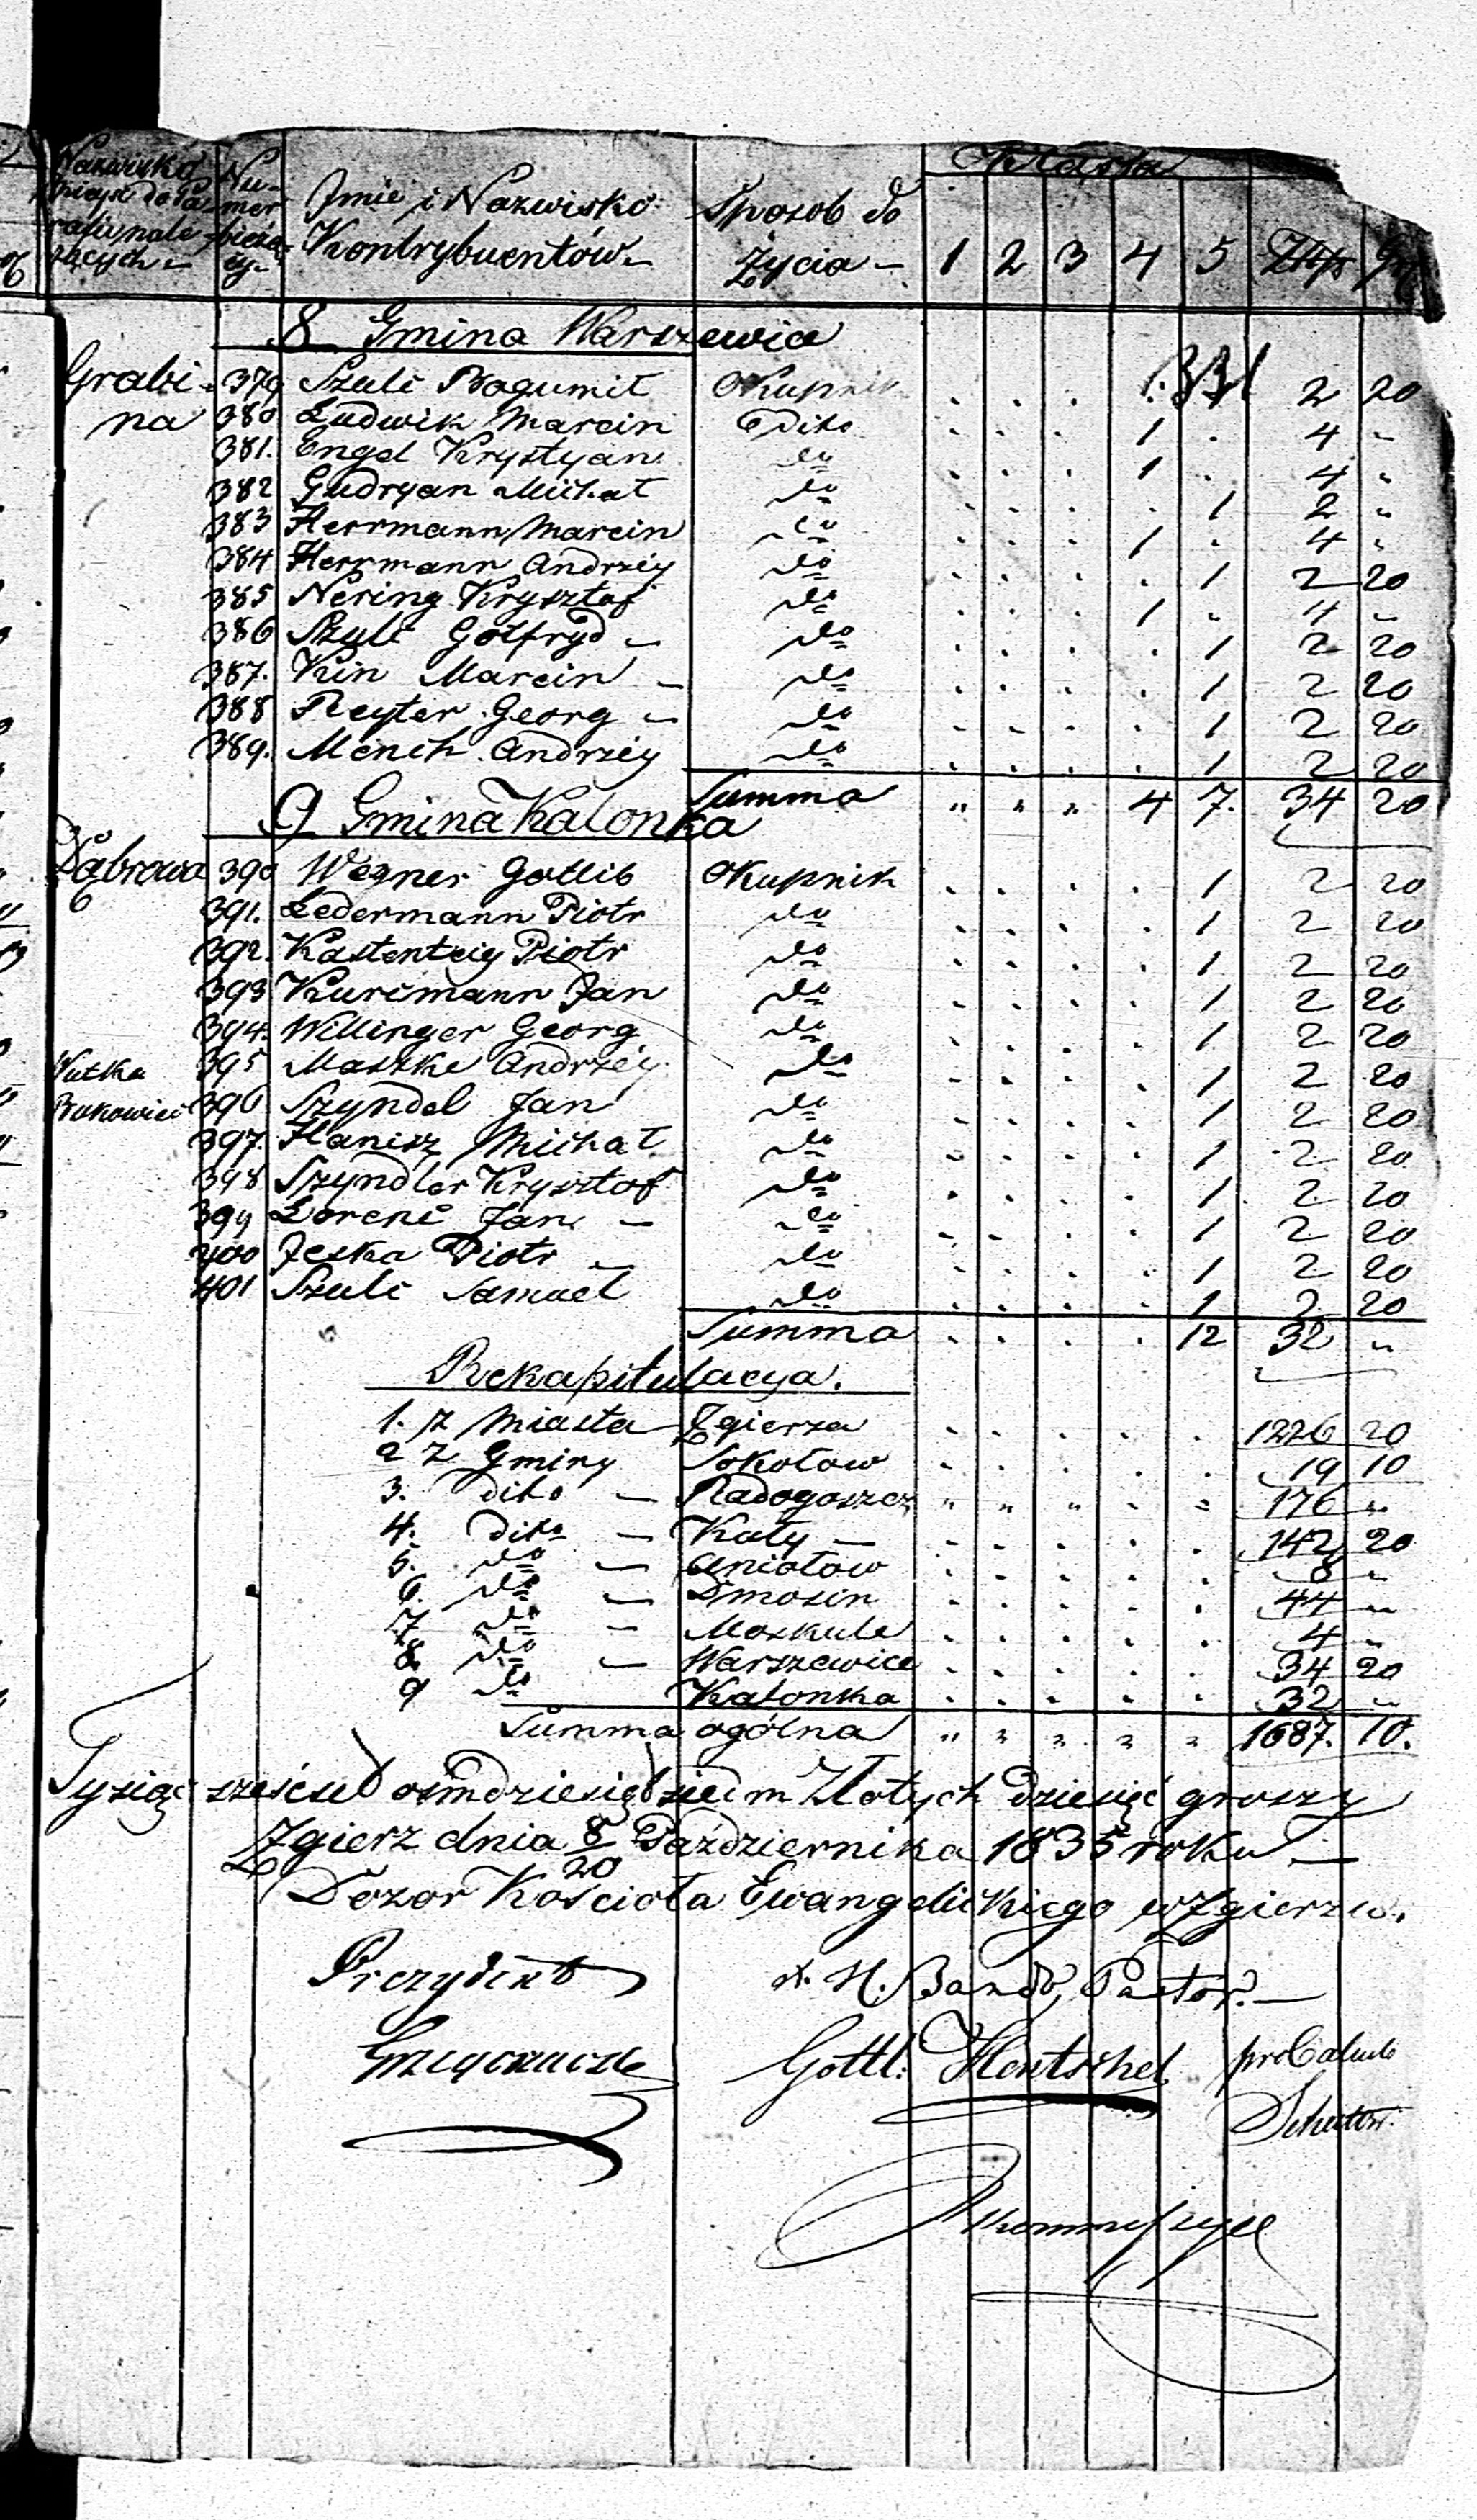 Klassa
Nazwisko Nu- Imie i Nazwisko Sposob do
mieysc do Pa- mer Kontrybuentów Życia 1 2 3 4 5 Złłp gr
rafii nale- bieżą-
żących cy
8 Gmina Warszewice
Grabi- 379 Szulc Bogumił Okupnik . . . 2 20
na 380 Ludwik Marcin Dito . . . 1 . 4 "
381. Engel Krystyan do . . . 1 . 4 "
382 Gudryan Michał do . . . . 1 2 "
383 Herrmann Marcin do . . . 1 . 4 "
384 Herrmann Andrzéy do . . . . 1 2 20
385 Nering Krysztof do . . . 1 " 4 "
386 Szulc Gotfryd do . . . . 1 2 20
387. Kin Marcin do . . . . 1 2 20
388 Reyter Georg do . . . . 1 2 20
389. Mench Andrzéy do . . . . 1 2 20
Summa " " " 4 7. 34 20
9 Gmina Kalonka
Dąbrowa 390 Wegner Gottlib Okupnik . . . . 1 2 20
391. Ledermann Piotr do . . . . 1 2 20
392. Kastenteig Piotr do . . . . 1 2 20
393 Kurcmann Jan do . . . . 1 2 20
394. Willinger Georg do . . . . 1 2 20
Wutka 395 Maszke Andrzéy do . . . . 1 2 20
Bukowiec 396 Szyndel Jan do . . . . 1 2 20
397. Hanisz Michał do . . . . 1 2 20
398 Szyndler Krysztof do . . . . 1 2 20
399 Lorenc Jan do . . . . 1 2 20
400 Jeska Piotr do . . . . 1 2 20
401 Szulc Samuel do . . . . 1 2 20
Summa . . . . 12 32 "
Rekapitulacya.
1. z Miasta Zgierza . . . . . 1226 20
2 z Gminy Sokołow . . . . . 19 10
3. dito Radogoszcz " " " " " 176 "
4. dito Kały . . . . . 142 20
5. do Aniołów . . . . . 8 "
6. do Dmosin . . . . . 44 "
7 do Moskule . . . . . 4 "
8. do Warszewice . . . . . 34 20
9 do Kalonka . . . . . 32 "
Summa ogólna " " " " " 1687. 10.
Tysiąc sześćset ośmdziesiąt siedm Złotych dziesięć groszy
Zgierz dnia 8/20 Października 1835 roku
Dozor Kościoła Ewangelickiego w Zgierzu.
Prezydent H. Bando, Pastor.
Gottl: Hentschel pro Calculo